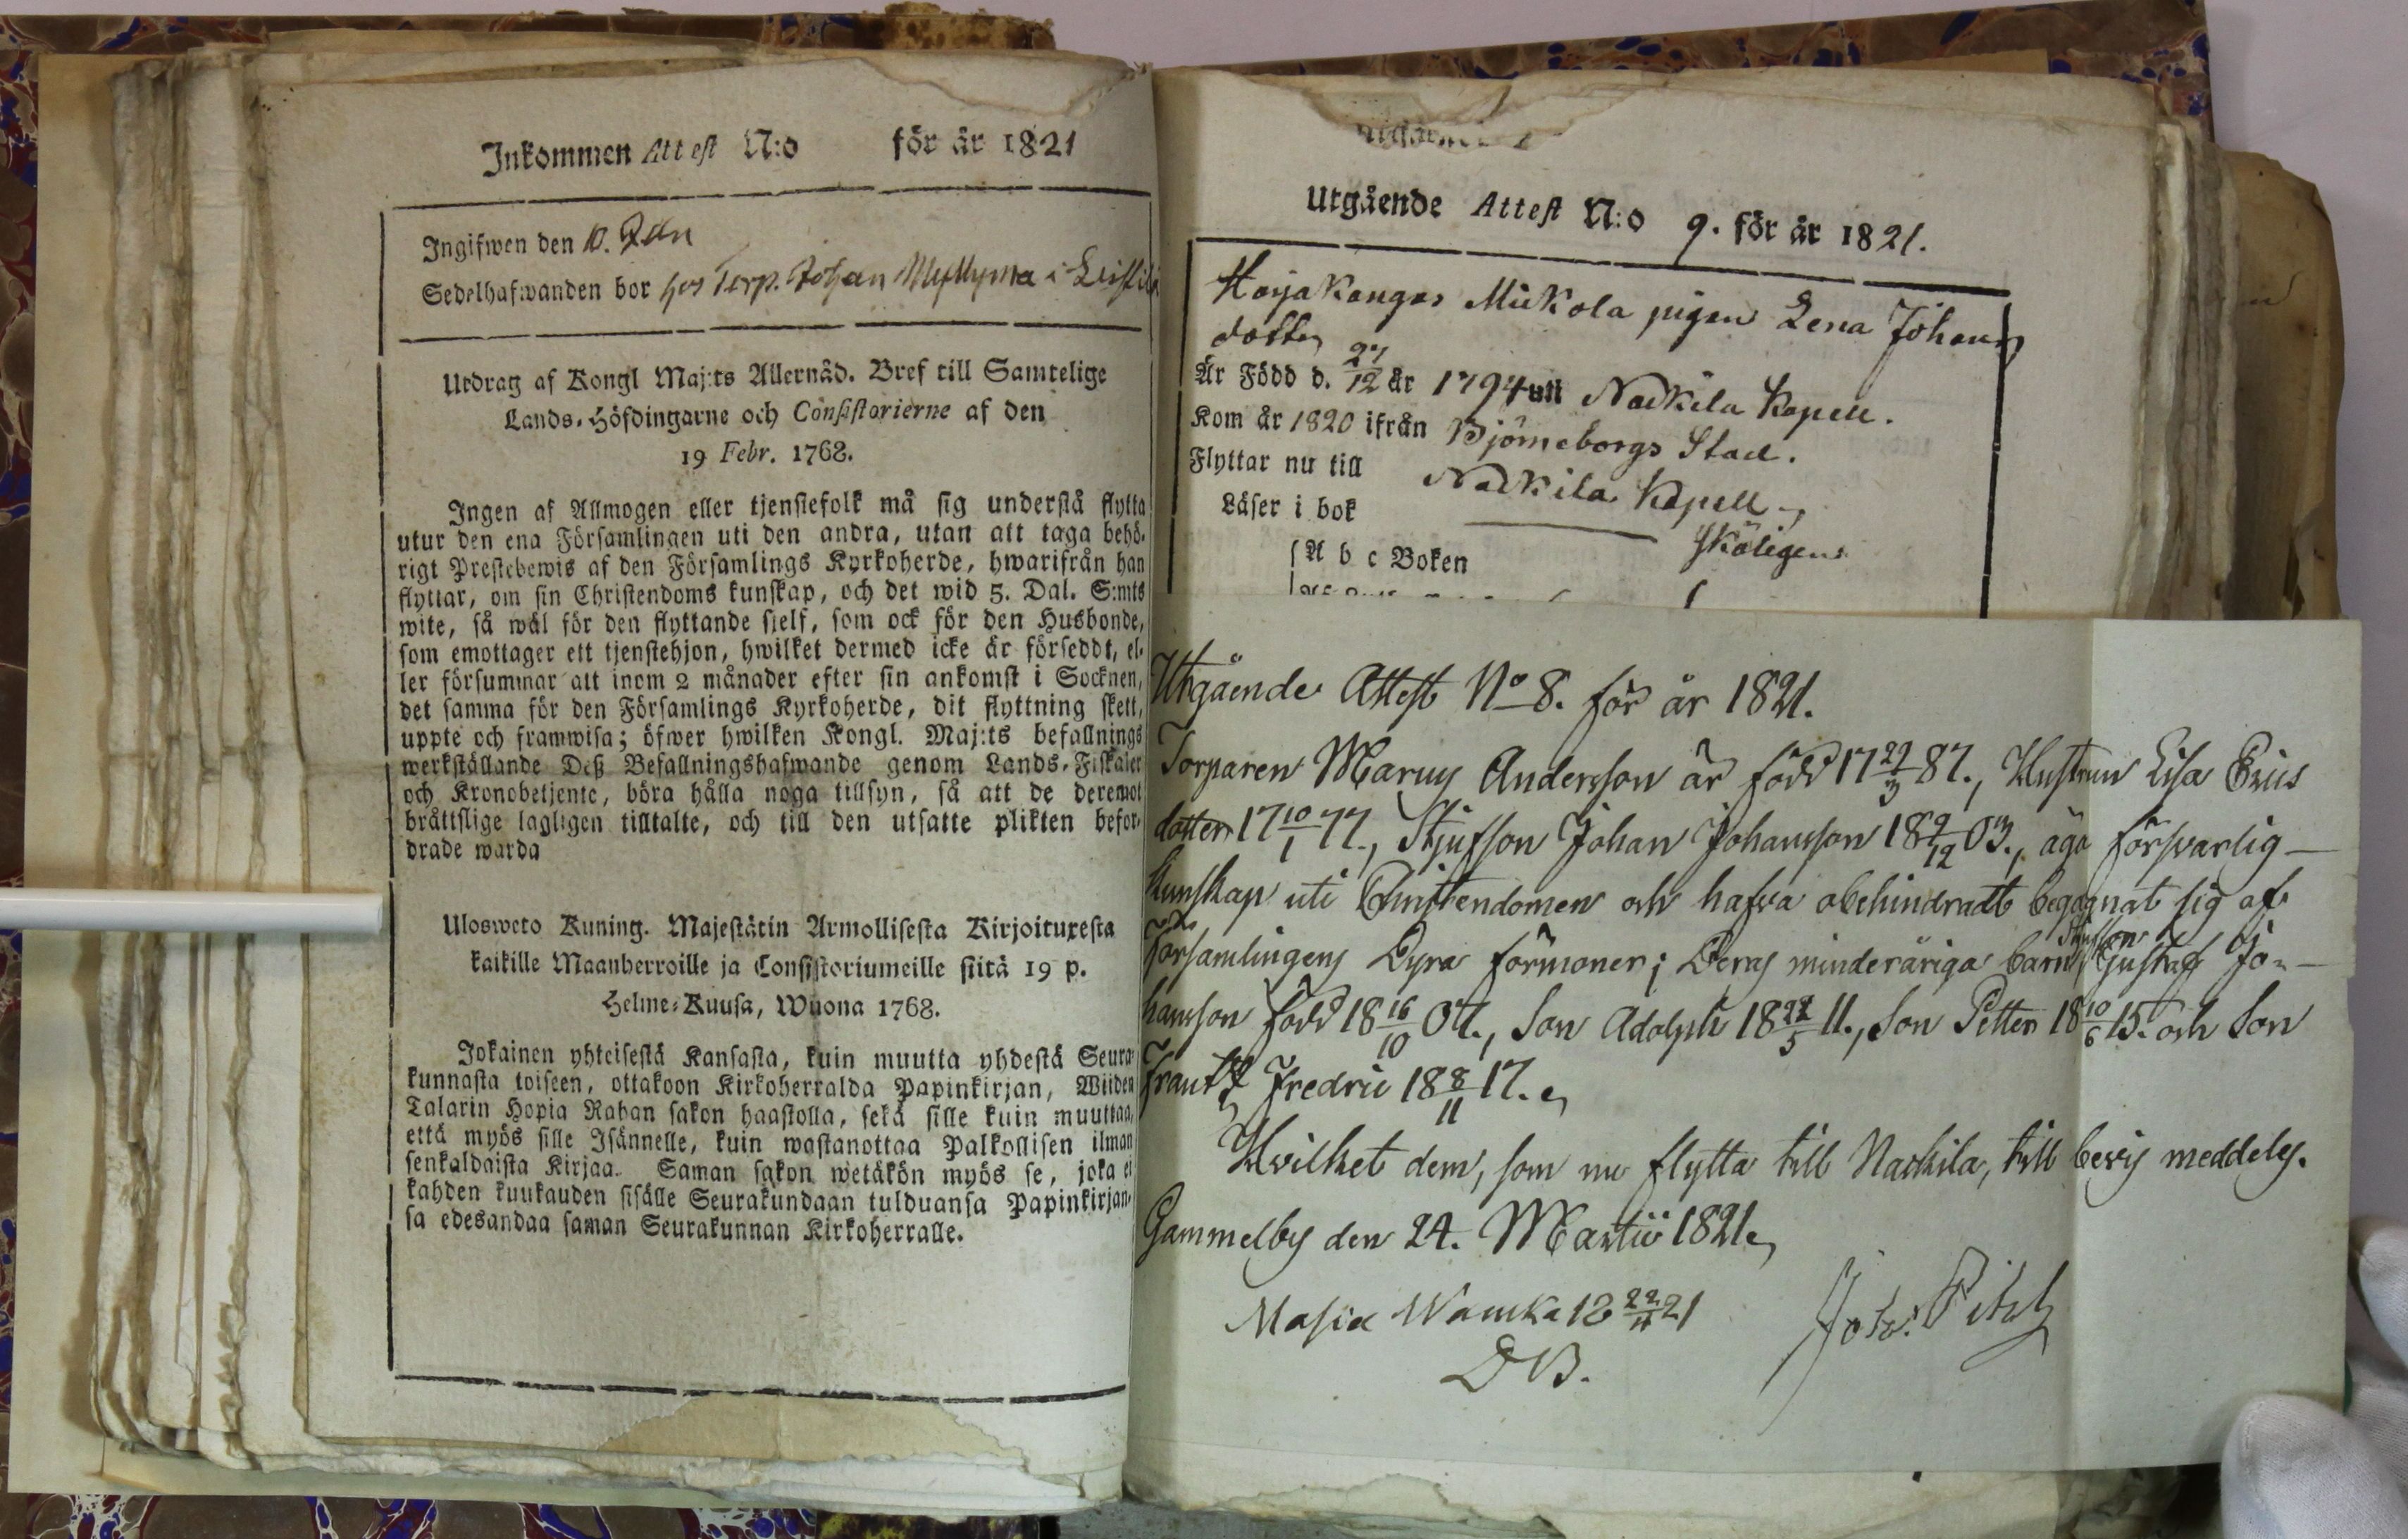 Inkommen Attest N:o för år 1821
Ingifwen den 10.
Sedelhafwanden bor hos Torp. Johan Myllyma i
Utdrag af Kongl Maj:ts Allernåd. Bref till Samtelige
Lands-Höfdingarne och Consistorierne af den
19 Febr. 1768.
Ingen af Allmogen eller tjenstefolk må sig understå flytta
utur den ena Församlingen uti den andra, utan att taga behö-
rigt Prestebewis af den Församlings Kyrkoherde, hwarifrån han
flyttar, om sin Christendoms kunskap, och det wid 5. Dal. S:mts
wite, så wäl för den flyttande sjelf, som ock för den Husbonde,
som emottager ett tjenstehjon, hwilket dermed icke är förseddt, el-
ler försummar att inom 2 månader efter sin ankomst i Socknen,
det samma för den Församlings Kyrkoherde, dit flyttning skett,
uppte och framwisa; öfwer hwilken Kongl. Maj:ts befallnings
werkställande Deß Befallningshafwande genom Lands-Fiskaler
och Kronobetjente, böra hålla noga tillsyn, så att de deremot
bråttslige lagligen tilltalte, och till den utsatte plikten befor-
drade warda
Ulosweto Kuning. Majestätin Armollisesta Kirjoituxesta
kaikille Maanherroille ja Consistoriumeille siitä 19 p.
Helme-Kuusa, Wuona 1768.
Jokainen yhteisestä Kansasta, kuin muutta yhdestä Seura-
kunnasta toiseen, ottakoon Kirkoherralda Papinkirjan, Wiiden
Talarin Hopia Rahan sakon haastolla, sekä sille kuin muuttaa,
että myös sille Isännelle, kuin wastanottaa Palkollisen ilman
senkaldaista Kirjaa. Saman sakon wetäkön myös se, joka ei
kahden kuukauden sisälle Seurakundaan tulduansa Papinkirjan-
sa edesandaa saman Seurakunnan Kirkoherralle.
Utgående Attest N:o 9. för år 1821.
Harjakangas Mickola pigan Lena Johans
dotter
Är Född d. 27/12 år 1794 uti Nackila Kapell.
Kom år 1820 ifrån Björneborgs Stad.
Flyttar nu till Nackila Kapell
Läser i bok skäligen
A b c Boken
Utgående Attest No 8. för år 1821.
Torparen Marcus Andersson är född 17 29/3 87., Hustrun Lisa Erics
dotter 17 10/1 77., Stjufson Johan Johansson 18 9/12 03., äga försvarlig
kunskap uti Christendomen och hafva obehindradt begagnat sig af
Församlingens Dyra förmoner; Deras minderåriga barn, Stjufson Gustaf Jo-
hansson född 18 16/10 07., Son Adolph 18 /5 11., Son Petter 18 10/6 15. och Son
Frantz Fredric 18 8/11 17.
Hvilket dem, som nu flytta till Nackila, till bevis meddeles.
Gammelby den 24. Martii 1821.
Masia Wamka 18 22/4 21 Joh. Pihl
DB.